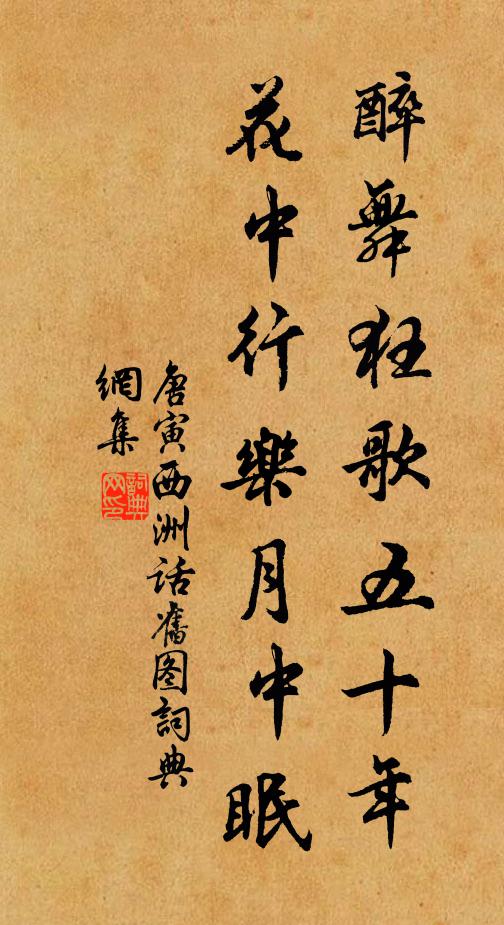 醉舞狂歌五十年
花中行樂月中眠
唐寅西洲话舊图詞典
網集
詞典
网印